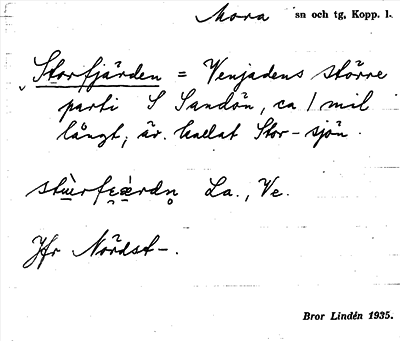 Mora sn och tg, Kopp. l.
Storfjärden = Venjadens större
parti S Sandön, ca 1 mil
långt; är. kallat Stor-sjön.
La., Ve.
Jfr Nördst-.
Bror Lindén 1935.